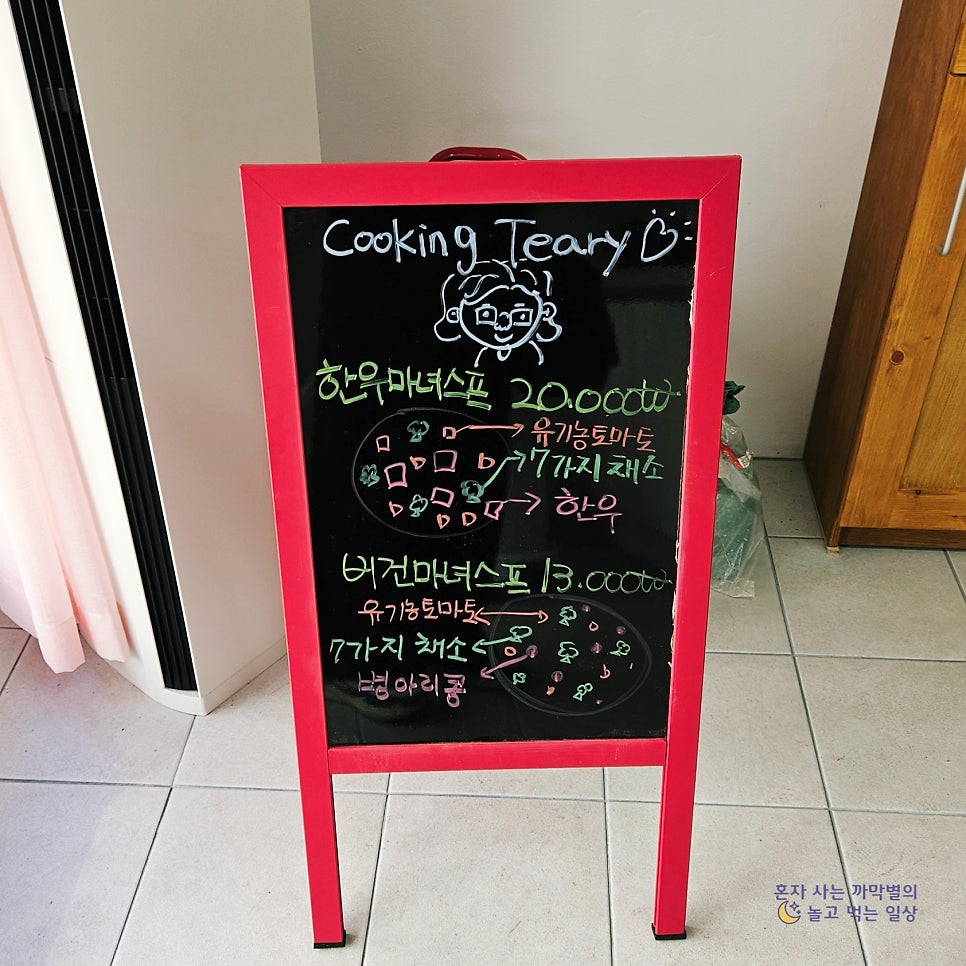 Cooking Teary
한우마녀스프 20.000₩
유기농토마토
7가지 채소
한우
버건마녀스프 13.000₩
유기농토마토
7가지 채소
병아리콩
혼자 사는 까막별의
놀고 먹는 일상